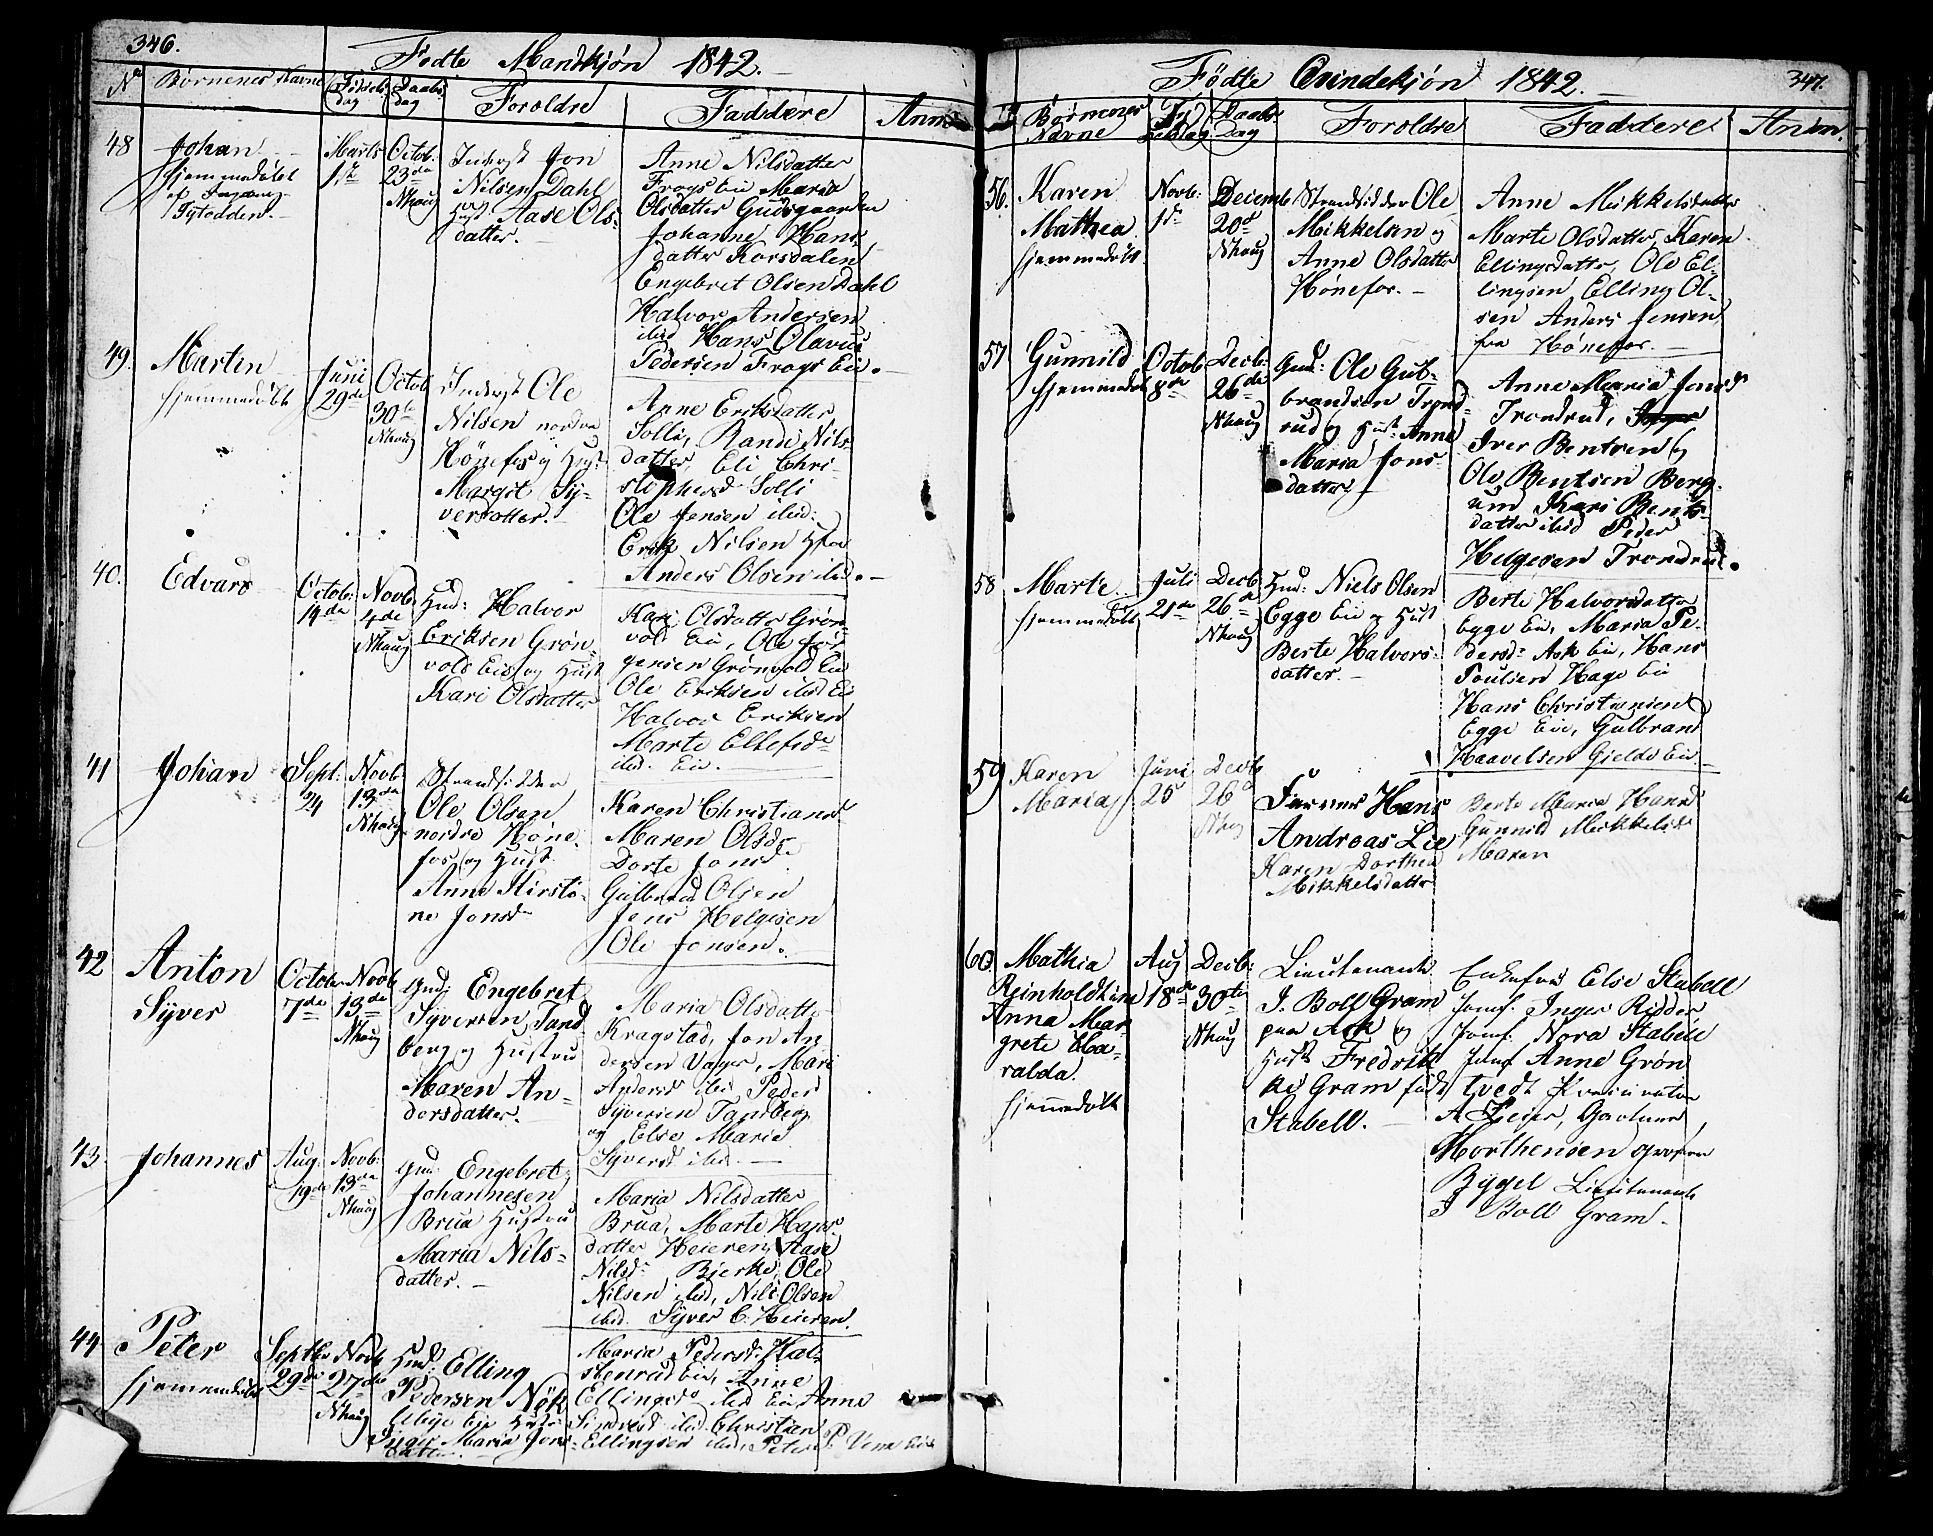 346.
Fødte Mandkjøn 1842.
No Børnenes Navne Fødsels Dag Daabs Dag Foroldre Faddere Anm
48 Johan hjemmedøbt
Marts 1ste
Octob: 23de Nhaug
Jon
Nilsen Dahl
og Hust. Aase Ols-
datter.
Anne Nilsdatter
Frogs Eie Maria
Olsdatter Gudsgaarden
Johanne Hans-
datter Korsdalen
Engebret Olsen Dahl
Halvor Andersen
ibid Hans Olavus
Pedersen Frogs Eie.
49. Martin
hjemmedøbt
Juni 29de
Octob 30te Nhaug
Ole
Nilsen nordre
Hønefos og Hust
Margit Sy-
versdatter.
Anne Eriksdatter
Solli, Randi Nils
datter, Eli Chri-
stophersd Solli
Ole Jensen ibid:
Erik Nilsen
Anders Olsen ibid.
40. Edvard
Octob: 14de
Novb: 4de Nhaug
Huusm: Halvor
Eriksen Grøn-
vold Eie og Hust
Kari Olsdatter
Kari Olsdatter Grøn-
vold Eie, Ole Jør-
gensen Grønvold Eie
Ole Eriksen ibid Eie
Halvor Eriksen
Marte Ellefsd
ibid. Eie.
41 Johan
Sept: 24
Novb: 13de Nhaug
Strandsidder
Ole Olsen
nordre Høne-
fos og Hust
Anne Kirsti-
ne Jonsd
Karen Christiansd
Maren Olsd
Dorte Jonsd
Gulbrand Olsen
Jens Helgesen
Ole Jonsen.
42 Anton
Syver
Octob 7de
Novb 13de Nhaug
Gmd: Engebret
Syversen Tand
berg og Hustru
Maren An-
dersdatter.
Maria Olsdatter
Kragstad, Jon An-
dersen Vager, Mari
Andersd ibid Peder
Syversen Tandberg
og Else Marie
Syversd ibid.
43. Johannes
Aug: 19de
Novb: 13de Nhaug
Gmd: Engebret
Johannesen
Brua Hustru
Maria Nils-
datter.
Maria Nilsdatter
Brua, Marte Hans
datter Heieren, Aase
Nilsd Bjerke, Ole
Nilsen ibid, Nils Olsen
ibid. Syver C. Heieren.
44 Peter
hjemmedøbt
Septb 29de
Novb 27de Nhaug
Huusm: Elling
Pedersen
Eie Hustru
Inger Maria Jons-
datter.
Maria Pedersd: Hal-
stenrud Eie, Anne
Ellingsd ibid Eie, Anne
ibid. Christian
Ellingsen ibid, Peter P.
347.
Fødte Qvindekjøn 1842.
No Børnenes Navne Fødselsdag Daabs Dag Foroldre Faddere Anm.
56. Karen
Mathea
hjemmedøbt
Novb: 1ste
Decemb 20de Nhaug
Strandsidder Ole
Mikkelsen og
Anne Olsdatter
Hønefos.
Anne Mikkelsdatter
Marte Olsdatter, Karen
Ellingsdatter, Ole El-
lingsen Elling Ol-
sen Anders Jensen
fra Hønefos.
57 Gunnild
hjemmedøbt
Octob 8de
Decb: 26de Nhaug
Gmd: Ole Gul-
brandsen Trond-
rud og Hust Anne
Maria Jons-
datter.
Anne Maria Jonsd
Trondrud,
Iver Bentsen og
Ole Bentsen Berg-
um Kari Bents-
datter ibid Peder
Helgesen Trondrud.
58 Marte
hjemmedøbt
Juli 21de
Decb: 26de Nhaug
Huusm: Niels Olsen
Egge Eie og Hust
Berte Halvors-
datter.
Berte Halvorsdatter
Egge Eie, Maria Pe-
dersd: Ask Eie, Hans
Poulsen Hage Eie
Hans Christensen
Egge Eie, Gulbrand
Haavelsen Gjelde Eie
59 Karen
Maria
Juni 25
Decb 26 Nhaug
Hans
Andreas Lie
Karen Dorthea
Mikkelsdatter
Berte Maria Hansd
Gunnild Mikkelsd
Maren
60. Mathia
Reinholdtine
Anna Mar-
grete Ha-
ralda.
hjemmedøbt
Aug 18de
Decb: 30te Nhaug
Lieutenant
I. Boll Gram
paa Ask og
Hust Fredrik-
ke Gram født
Stabell.
Enkefru Else Stabell
Jomf. Inger Ridder
Jomf. Nora Stabell
Jomf Anne Grøn
tvedt
A Leier, Gartner
Morthensen
Bygel Lieutenant
I Boll Gram.